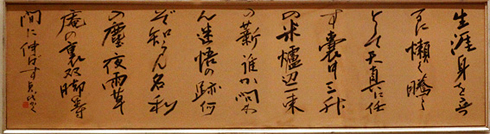 生涯身を立
るに懶く騰々
として天真に任
す嚢中三升
の米爐辺一束
の薪誰か問は
ん迷悟の跡何
ぞ知らん名利
の塵夜雨草
庵の裏双脚等
間に伸ばす